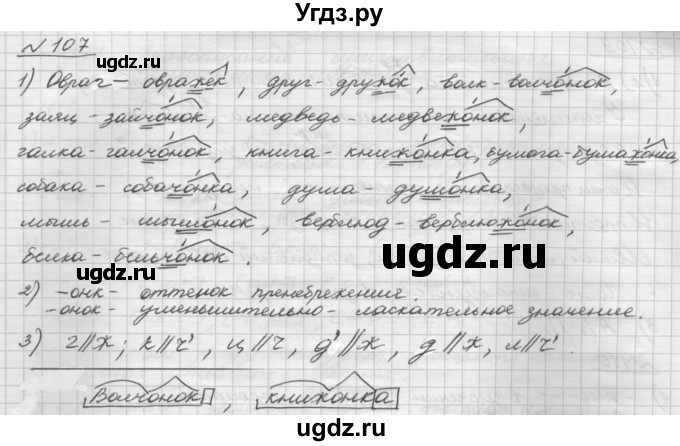 Угдз.ру
№ 107
ugdz.ru
ugdz.ru
1) Овраг – овражек, друг – дружок, волк – волчонок,
заяц – зайчонок, медведь – медвежонок,
галка – галчонок, книга – книжонка, бумага – бумажонка,
собака – собачонка, душа – душонка,
мышь – мышонок, верблюд – верблюжонок,
белка – бельчонок.
ugdz.ru
ugdz.ru
2) –онк– оттенок пренебрежения.
–онок – уменьшительно – ласкательное значение.
3) г//ж; к//ч', ц//ч, д'//ж, д//ж, л//ч'.
ugdz.ru
Волчонок, книжонка
Угдз.ру